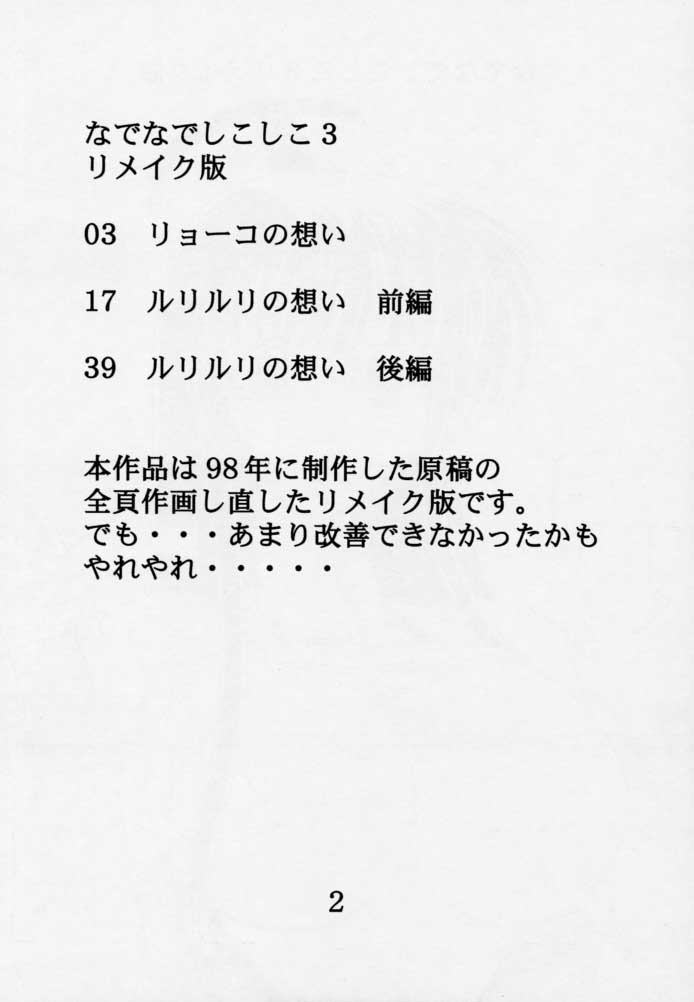 なでなでしこしこ3
リメイク版
03　リョーコの想い
17　ルリルリの想い　前編
39　ルリルリの想い　後編
本作品は98年に制作した原稿の
全頁作画し直したリメイク版です。
でも・・・あまり改善できなかったかも
やれやれ・・・・・
2